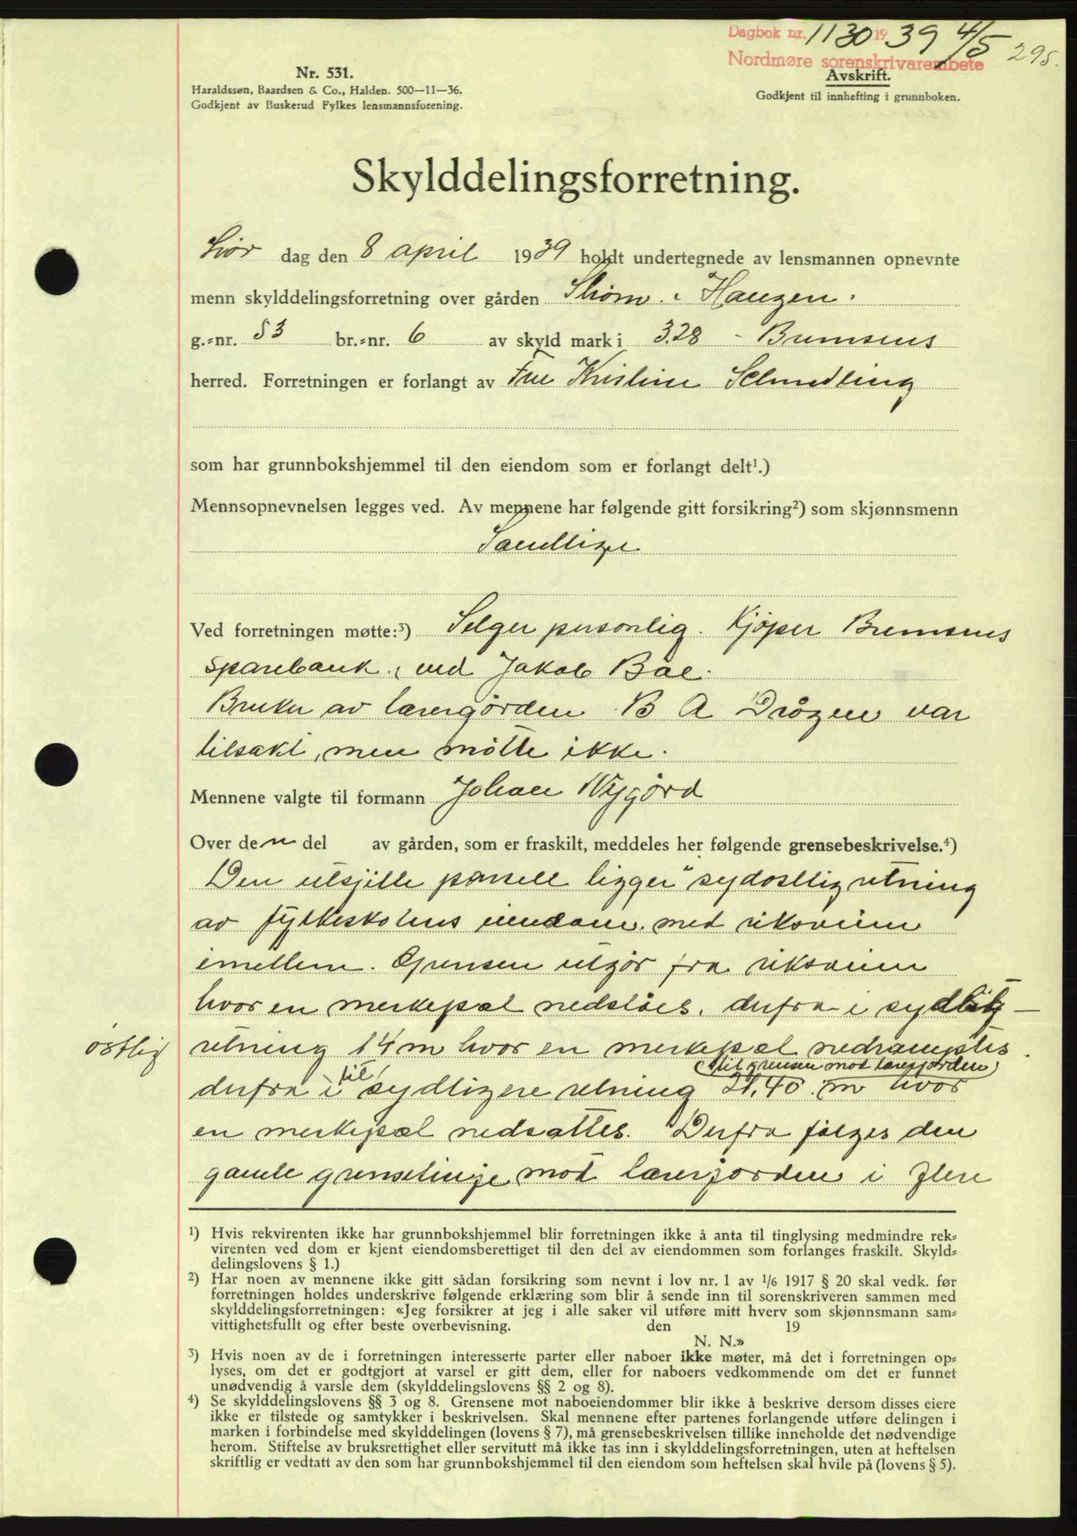 Dagbok nr. 1130 1939 4/5
295.
Nordmøre sorenskrivarembete
Nr. 531.
Haraldssøn, Baardsen & Co., Halden. 500—11—36.
Godkjent av Buskerud Fylkes lensmannsforening.
Avskrift.
Godkjent til innhefting i grunnboken.
Skylddelingsforretning.
Lør dag den 8 april 1939 holdt undertegnede av lensmannen opnevnte
menn skylddelingsforretning over gården Strøm i Haugen.
g.-nr. 53 br.-nr. 6 av skyld mark i 3.28 - Bremsnes
herred. Forretningen er forlangt av Fru Kristine Schmedling
som har grunnbokshjemmel til den eiendom som er forlangt delt¹.)
Mennsopnevnelsen legges ved. Av mennene har følgende gitt forsikring²) som skjønnsmenn
Samtlige
Ved forretningen møtte:³) Selger personlig. Kjøper Bremsnes
sparebank, ved Jakob Bae.
Bruker av lærergården B A Drågen var
tilsakt, men møtte ikke.
Mennene valgte til formann Johan Nygård
Over den del av gården, som er fraskilt, meddeles her følgende grensebeskrivelse.⁴)
Den utsjilte parsell ligger i sydøstlig retning
av fylkeskolens eiendom. med riksveien
imellem. Grensen utgjør fra riksveien
hvor en merkepæl nedslåes. derfra i sydlig -
østlig
retning 14 m hvor en merkepæl nedrampites.
(til grensen mot lærerjorden)
derfra i til sydligere retning 21,40 m hvor
en merkepæl nedsattes. Derfra følges den
gamle grenselinje mot lærerjorden i flere
¹) Hvis rekvirenten ikke har grunnbokshjemmel blir forretningen ikke å anta til tinglysing medmindre rek-
virenten ved dom er kjent eiendomsberettiget til den del av eiendommen som forlanges fraskilt. Skyld-
delingslovens § 1.)
²) Har noen av mennene ikke gitt sådan forsikring som nevnt i lov nr. 1 av 1/6 1917 § 20 skal vedk. før
forretningen holdes underskrive følgende erklæring som blir å sende inn til sorenskriveren sammen med
skylddelingsforretningen: «Jeg forsikrer at jeg i alle saker vil utføre mitt hverv som skjønnsmann sam-
vittighetsfullt og efter beste overbevisning. den 19
N. N.»
³) Hvis noen av de i forretningen interesserte parter eller naboer ikke møter, må det i forretningen op-
lyses, om det er godtgjort at varsel er gitt dem, eller for naboers vedkommende om det er funnet
unødvendig å varsle dem (skylddelingslovens §§ 2 og 8).
⁴) Se skylddelingslovens §§ 3 og 8. Grensene mot naboeiendommer blir ikke å beskrive dersom disses eiere
ikke er tilstede og samtykker i beskrivelsen. Skal mennene efter partenes forlangende utføre delingen i
marken i forbindelse med skylddelingen (lovens § 7), må grensebeskrivelsen tillike inneholde det nødvendige
herom. Stiftelse av bruksrettighet eller servitutt må ikke tas inn i skylddelingsforretningen, uten at heftelsen
skriftlig er vedtatt av den som har grunnbokshjemmel til den eiendom som heftelsen skal hvile på (lovens § 5).